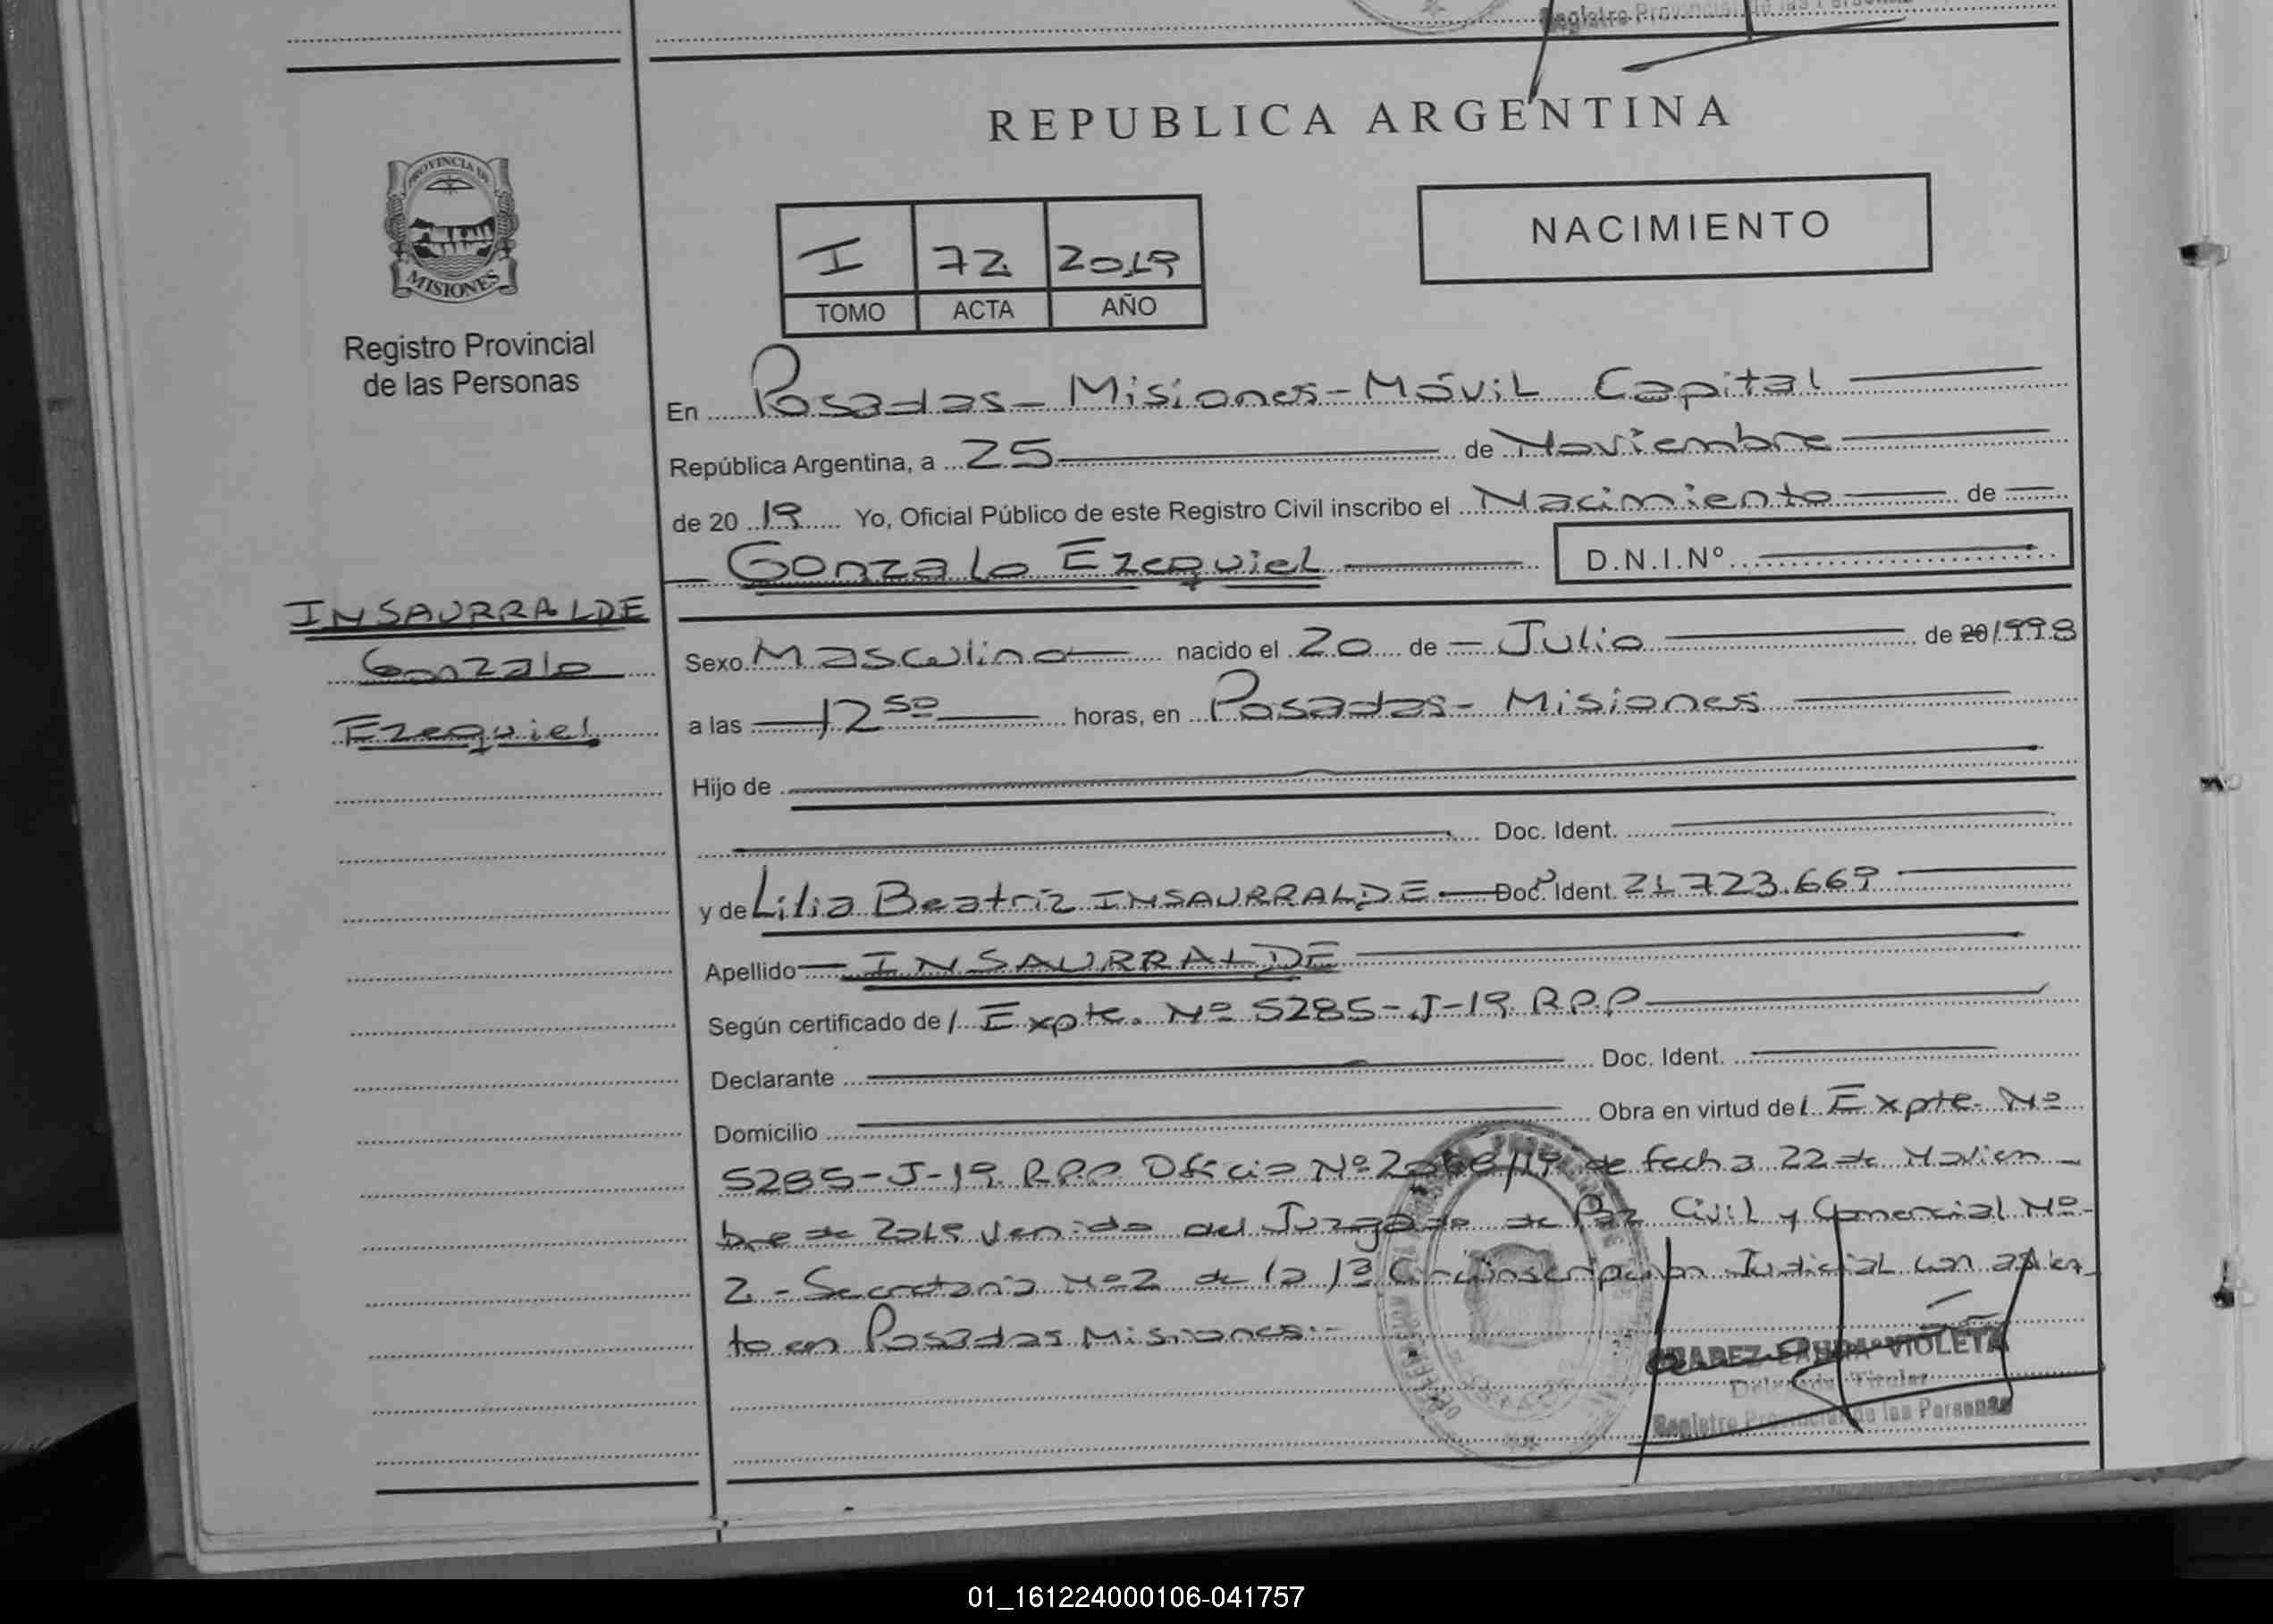 Registro Provincial de las Personas
REPUBLICA ARGENTINA
PROVINCIA DE
MISIONES
Registro Provincial
de las Personas
I 72 2019
TOMO ACTA AÑO
NACIMIENTO
En Posadas - Misiones - Móvil Capital
República Argentina, a 25 de Noviembre
de 20 19 Yo, Oficial Público de este Registro Civil inscribo el Nacimiento de
Gonzalo Ezequiel D.N.I.Nº
INSAURRALDE
Gonzalo
Ezequiel
Sexo Masculino nacido el 20 de Julio de 20 1998
a las 12 50 horas, en Posadas - Misiones
Hijo de
Doc. Ident.
y de Lilia Beatriz INSAURRALDE Doc. Ident. 21.723.669
Apellido INSAURRALDE
Según certificado del Expte. Nº 5285-J-19 R.P.P
Declarante Doc. Ident.
Domicilio Obra en virtud del Expte. Nº
5285-J-19 R.P.P Oficio Nº de fecha 22 de Noviem-
bre de 2019 venido del Juzgado de Paz Civil y Comercial Nº-
2 - Secretaria Nº 2 de la 1ª Circunscripción Judicial con asien-
to en Posadas Misiones.-
VIOLETA
Delegada Titular
Registro Provincial de las Personas
01_161224000106-041757